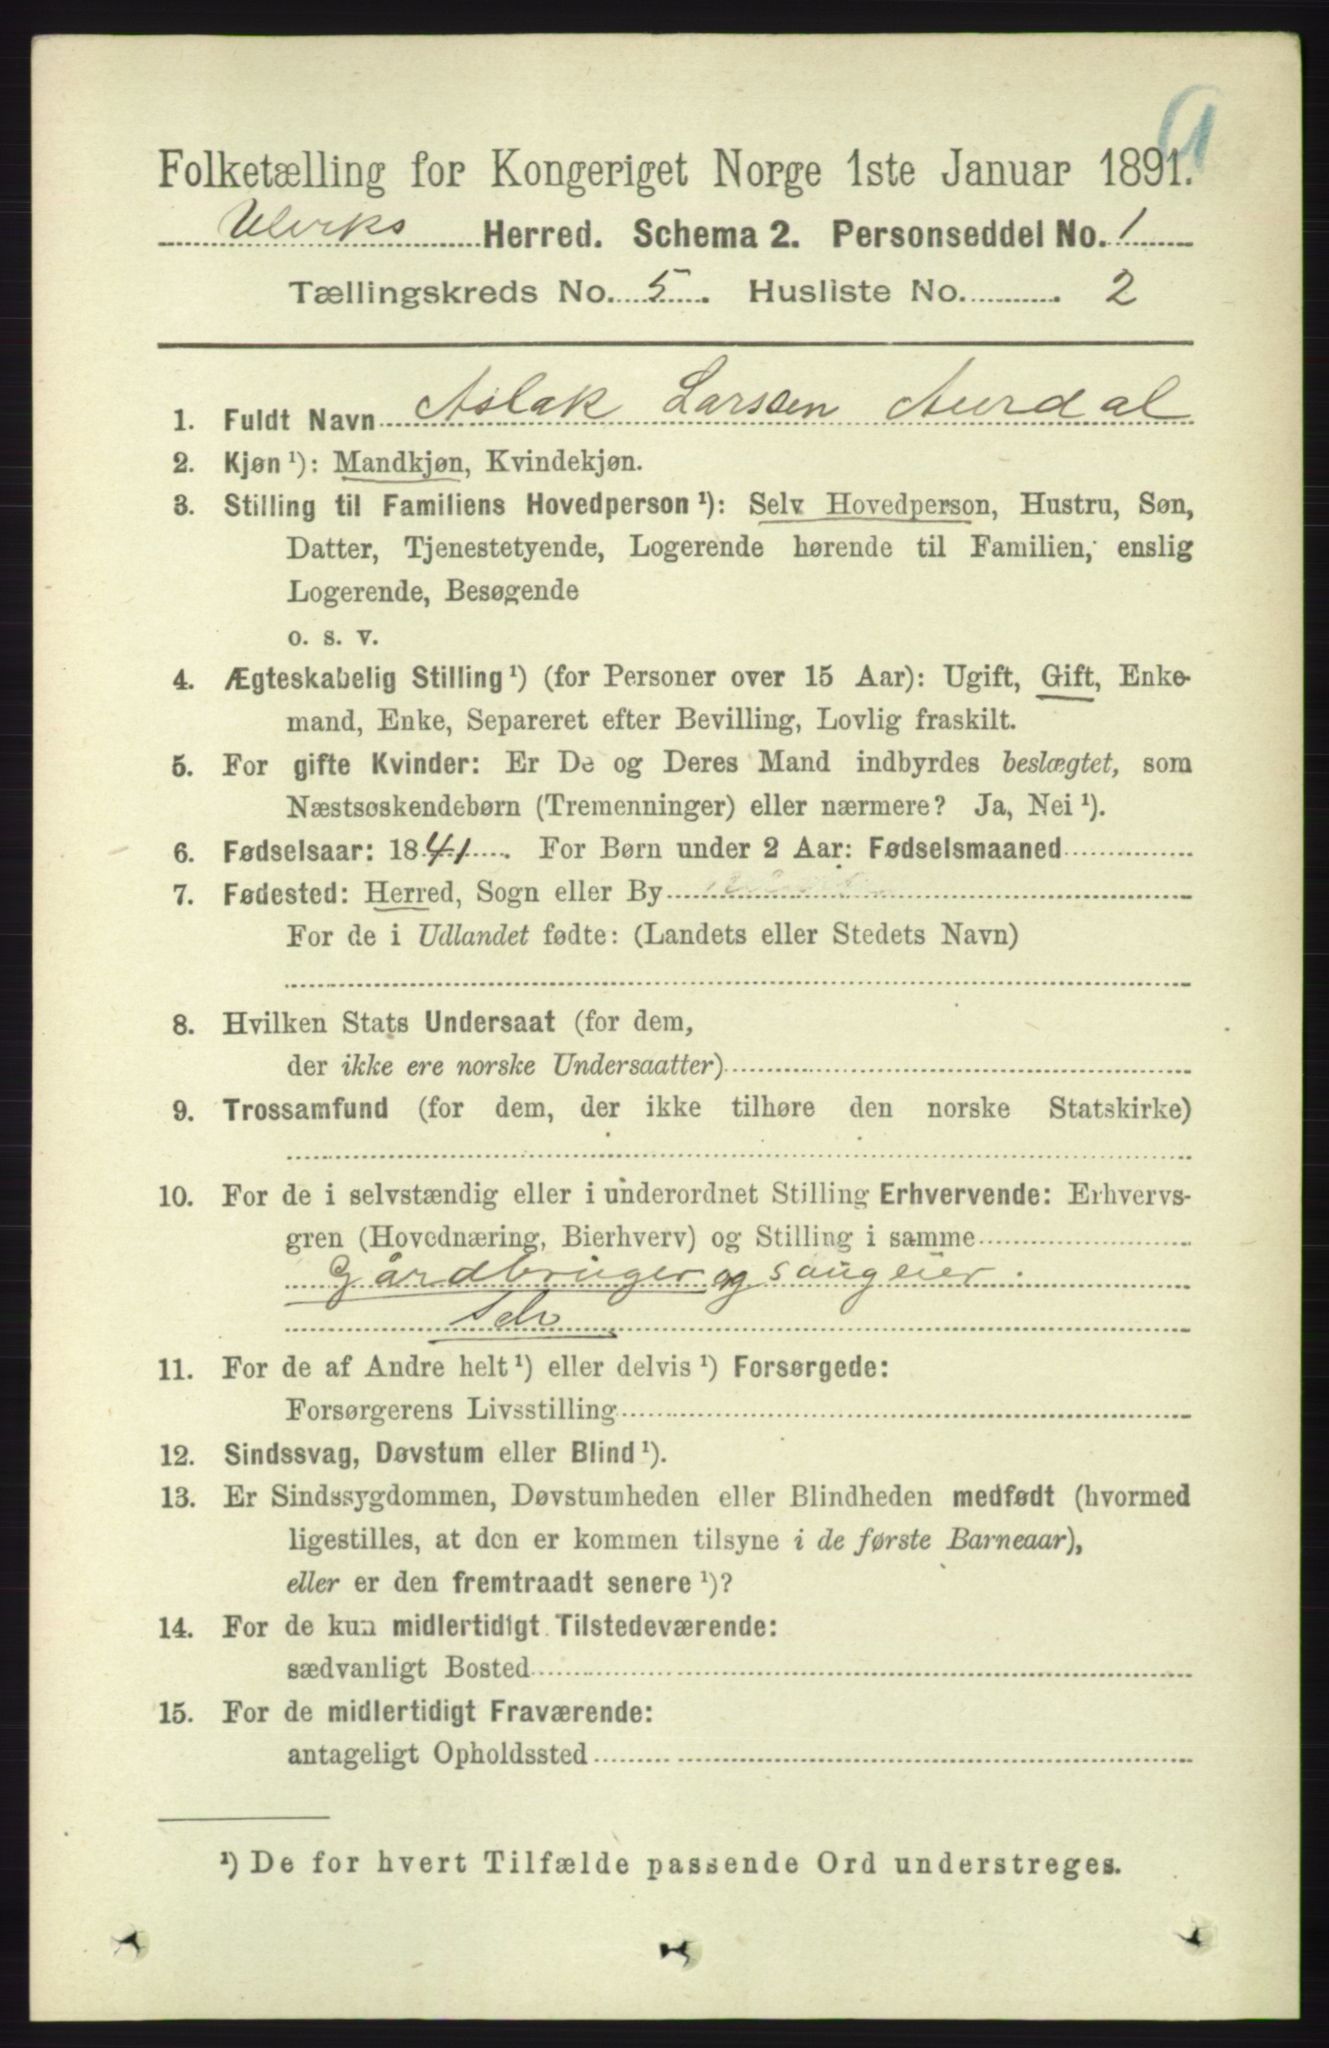 Folketælling for Kongeriget Norge 1ste Januar 1891.
Ulviks Herred. Schema 2. Personseddel No. 1
Tællingskreds No. 5. Husliste No. 2
1. Fuldt Navn Aslak Larssen Aurdal
2. Kjøn ¹): Mandkjøn, Kvindekjøn.
3. Stilling til Familiens Hovedperson ¹): Selv Hovedperson, Hustru, Søn,
Datter, Tjenestetyende, Logerende hørende til Familien, enslig
Logerende, Besøgende
o. s. v.
4. Ægteskabelig Stilling ¹) (for Personer over 15 Aar): Ugift, Gift, Enke-
mand, Enke, Separeret efter Bevilling, Lovlig fraskilt.
5. For gifte Kvinder: Er De og Deres Mand indbyrdes beslægtet, som
Næstsøskendebørn (Tremenninger) eller nærmere? Ja, Nei ¹).
6. Fødselsaar: 1841. For Børn under 2 Aar: Fødselsmaaned
7. Fødested: Herred, Sogn eller By
For de i Udlandet fødte: (Landets eller Stedets Navn)
8. Hvilken Stats Undersaat (for dem,
der ikke ere norske Undersaatter)
9. Trossamfund (for dem, der ikke tilhøre den norske Statskirke)
10. For de i selvstændig eller i underordnet Stilling Erhvervende: Erhvervs-
gren (Hovednæring, Bierhverv) og Stilling i samme
Gårdbruger og saugeier.
Selv
11. For de af Andre helt ¹) eller delvis ¹) Forsørgede:
Forsørgerens Livsstilling
12. Sindssvag, Døvstum eller Blind ¹).
13. Er Sindssygdommen, Døvstumheden eller Blindheden medfødt (hvormed
ligestilles, at den er kommen tilsyne i de første Barneaar),
eller er den fremtraadt senere ¹)?
14. For de kun midlertidigt Tilstedeværende:
sædvanligt Bosted
15. For de midlertidigt Fraværende:
antageligt Opholdssted
¹) De for hvert Tilfælde passende Ord understreges.